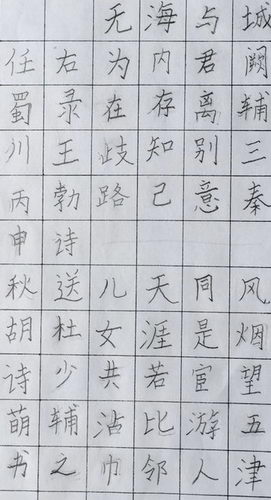 城阙辅三秦 风烟望五津
与君离别意 同是宦游人
海内存知己 天涯若比邻
无为在歧路 儿女共沾巾
右录王勃诗送杜少辅之
任蜀川丙申秋胡诗萌书